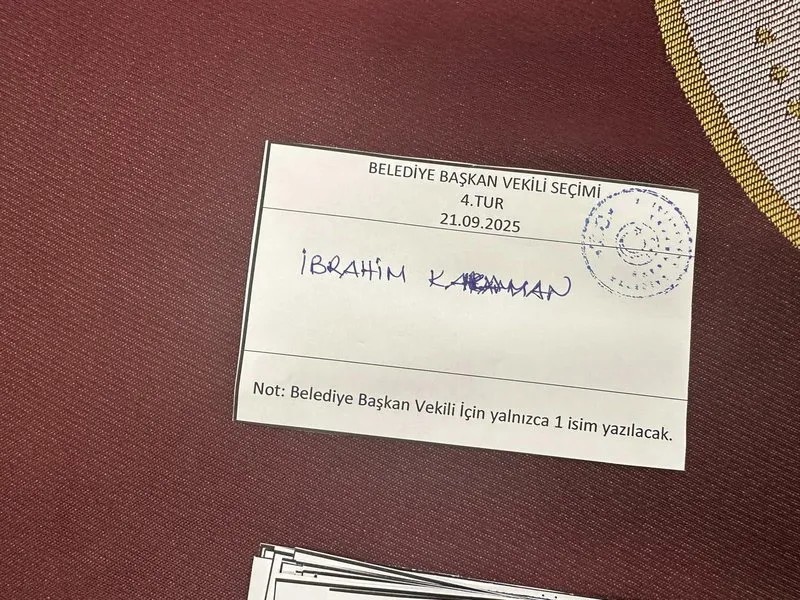 BELEDİYE BAŞKAN VEKİLİ SEÇİMİ
4.TUR
21.09.2025
İBRAHİM
Not: Belediye Başkan Vekili İçin yalnızca 1 isim yazılacak.